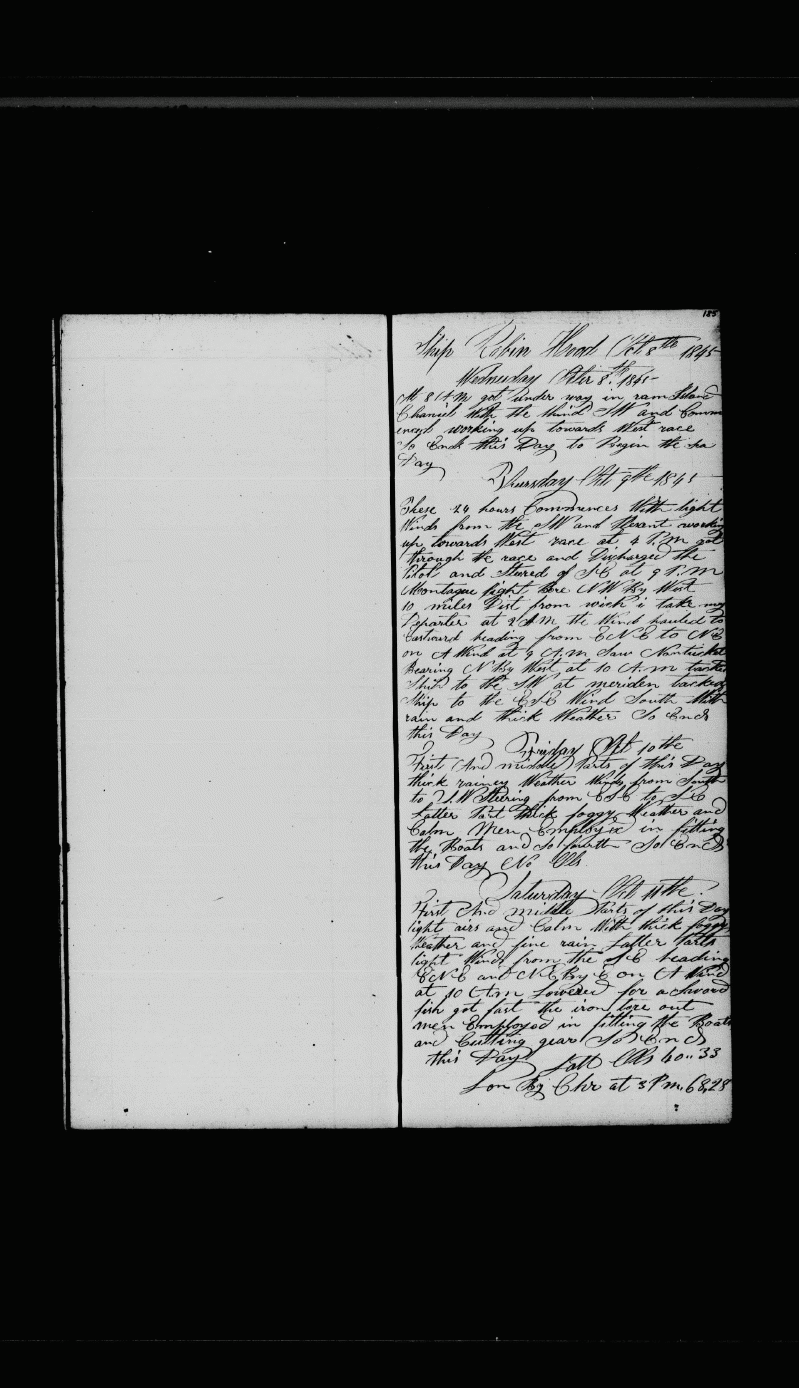 185
Ship Robin Hood Oct 8th 1845
Wednesday Octber 8th 1845
At 8 A.M got under way in ram Island
Channel With the Wind SW and Comm
enced working up towards West race
So Ends this Day to Begin the Sea
Day
Thursday Oct 9th 1845
These 24 hours Commences With light
Winds from the SW and working
up towards West race at 4 P.M got
through the race and Discharged the
Pilot and Steered of S.E at 9 P.M
Montague light Bore NW By West
10 miles Dist from wich i take my
Departer at 2 A.M the Wind hauled to
Eastward heading from ENE to NE
on A Wind at 9 A.M Saw Nantucket
Bearing N By West at 10 A.M tacked
Ship to the SW at meriden tacked
Ship to the ESE Wind South With
rain and thick Weather So Ends
this Day
Friday Oct 10the
First And middle Parts of this Day
thick rainey Weather Winds from South
to SW Steering from ESE to SE
Latter Part thick foggy Weather and
Calm Men Employed in fitting
the Boats and So fourth So Ends
this Day No Obs
Saturday Oct 11the
First And middle Parts of this Day
light airs and Calm With thick foggy
Weather and fine rain Latter Parts
light Winds from the S.E heading
ENE and NE By E on A Wind
at 10 A.m Lowered for a Sword
fish got fast the iron tore out
men Employed in fitting the Boats
and Cutting gear So Ends
this Day Latt Obs 40..33
Lon By Chr at 3 P.m. 68,28